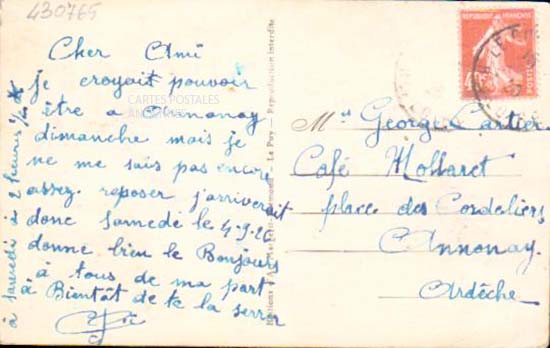 430765
Cher Ami
je croyait pouvoir
être a Annonay
dimanche mais je
ne me sais pas encore
assez reposer j'arriverait
donc Samedi le 4-9-26
donne bien le Bonjours
à tous de ma part
à Bientôt de te la serrer
à samedi à 2 heures
CARTES POSTALES
Le Puy - Reproduction Interdite
REPUBLIQUE FRANÇAISE
POSTES
Mr George Cartier
Café Mollaret
place des Cordeliers
Annonay
Ardèche